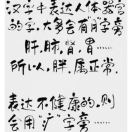 汉字中表达人体器官
的字，大多会有"月"字旁
肝、肺、肾、胃……
所以，胖，属正常。
表达不健康的，则
会用"疒"字旁……